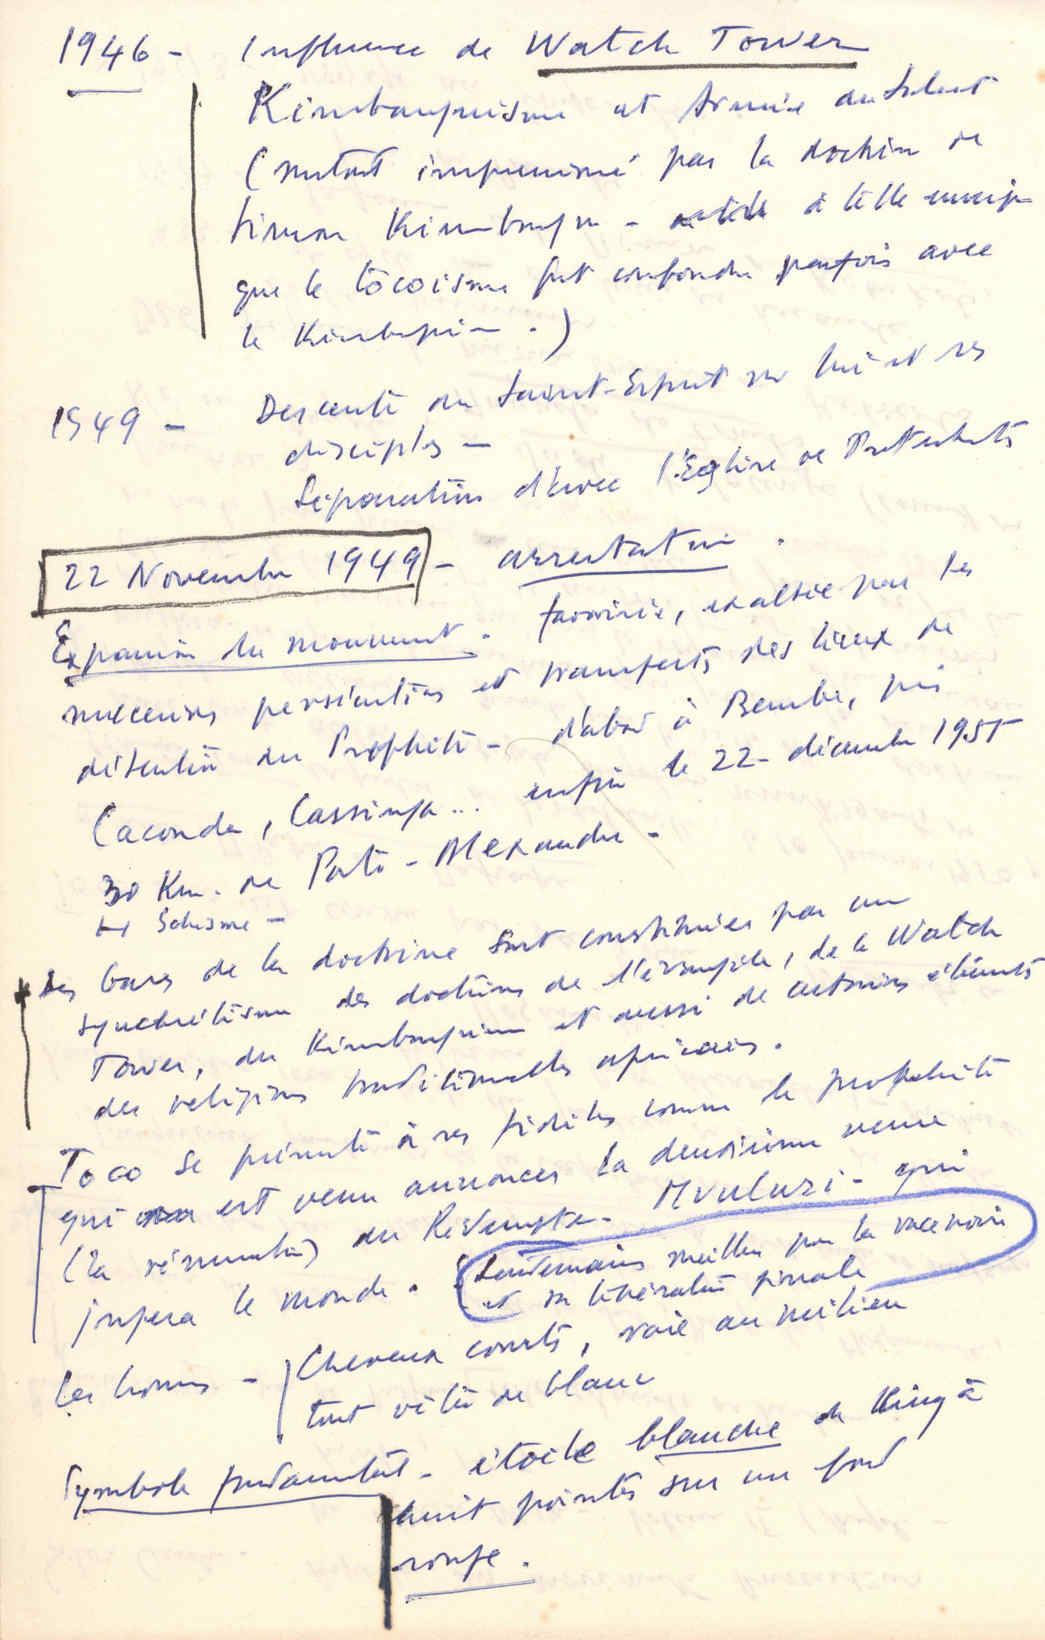 1946 - Influence de Watch Tower
Kimbanguisme et Armée du Salut
(surtout impressionné par la doctrine de
Simon Kimbangu - à telle enseigne
que le tocoisme fut confondu parfois avec
le Kimbangisme.)
1949 - Descente du Saint-Esprit sur lui et ses
disciples -
Séparation d'avec l'Eglise de Protestants
22 Novembre 1949 - arrestation.
Expansion du mouvement. favorisée, exaltée par les
successives persécutions et transferts des lieux de
détention du Prophète - d'abord à Bembe, puis
Caconda, Cassinga... enfin le 22 - décembre 1955
30 Km. de Porto - Alexandre -
Schisme -
Les bases de la doctrine sont constituées par un
syncrétisme des doctrines de l'évangile, de la Watch
Tower, du Kimbanguisme et aussi de certains éléments
des religions traditionnelles africaines.
Toco se présente à ses fidèles comme le prophète
qui est venu annoncer la deuxième venue
(la résurrection) du Rédempteur - Mvuluzi - qui
jugera le monde. Lendemains meilleurs pour la race noire
et sa libération finale
Les hommes - Cheveux courts, raie au milieu
tout vêtu de blanc
Symbole fondamental - étoile blanche de
huit pointes sur un fond
rouge.